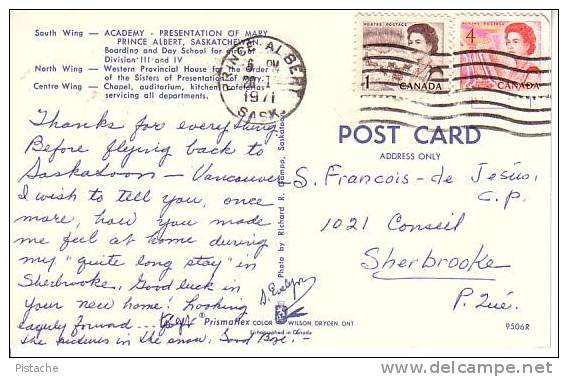 South Wing — ACADEMY - PRESENTATION OF MARY
PRINCE ALBERT, SASKATCHEWAN.
Boarding and Day School for girls
Division III and IV
North Wing — Western Provincial House for the Order
of the Sisters of Presentation of Mary
Centre Wing — Chapel, auditorium, kitchen, cafeterias
servicing all departments.
PRINCE ALBERT
6 PM
20 I
1971
SASK.
POSTES POSTAGE
1
CANADA
POSTES POSTAGE
4
CANADA
Thanks for everything.
Before flying back to
Saskatoon — Vancouver
I wish to tell you, once
more, how you made
me feel at home during
my "quite long stay" in
Sherbrooke. Good luck in
your new home! Looking
eagerly forward ... for
the pictures in the snow. Good Bye. -
S. Evelyn
Photo by Richard R. Gampp, Saskatoon
POST CARD
ADDRESS ONLY
S. François-de Jesús,
c.p.
1021 Conseil
Sherbrooke
P. Qué.
Prismaflex COLOR WILSON, DRYDEN, ONT
Lithographed in Canada
9506R
delcampe.net